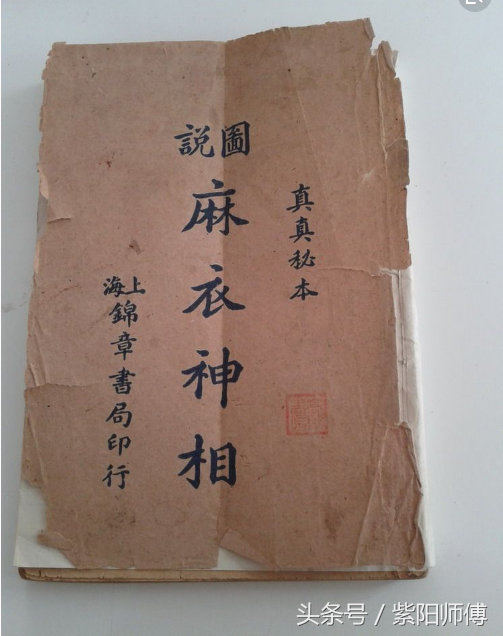 真真秘本
圖說
麻衣神相
上海
錦章書局印行
头条号／紫阳师傅